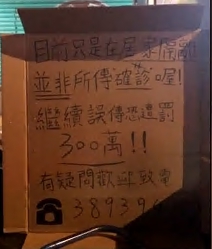 目前只是在居家隔離
並非所傳確診喔!
繼續誤傳恐遭罰
300萬!!
有疑問歡迎致電
☎38939